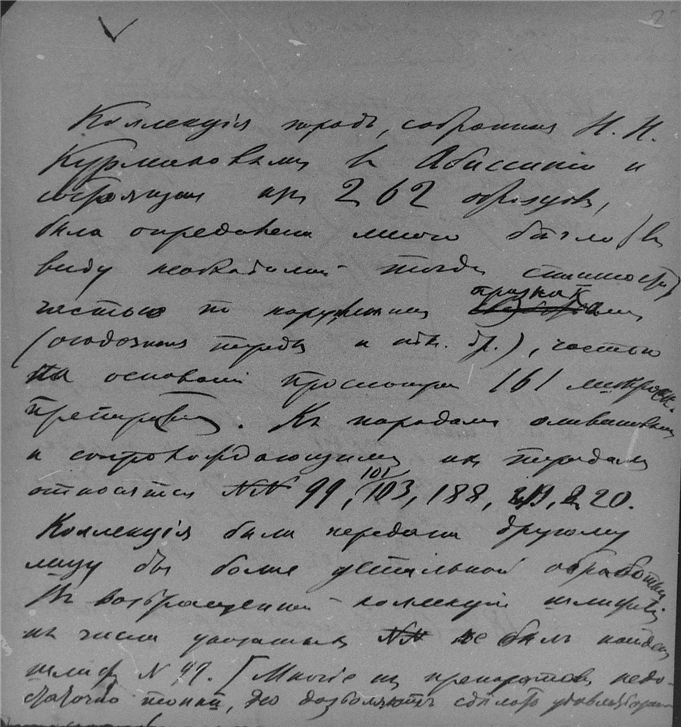 2
Коллекція породъ, собранная Н. Н.
Курмаковымъ въ Абиссиніи и
состоящая изъ 262 образцовъ,
была опредѣлена мною бѣгло (въ
виду тогда спѣшности)
частью по наружнымъ признакамъ
(осадочныя породы и нѣк. др.), частью
на основаніи просмотра 161 микроск.
препаратовъ. Къ породамъ оливиновымъ
и сопровождающимъ ихъ породамъ
относятся NN 99, 101, 103, 188, 220.
Коллекція была передана другому
лицу для болѣе детальной обработки
Въ возвращенной коллекціи шлифовъ
изъ числа указанныхъ NN не былъ найденъ
шлифъ N 99. [Многіе изъ препаратовъ недо-
статочно тонки, но дозволяютъ сдѣлать